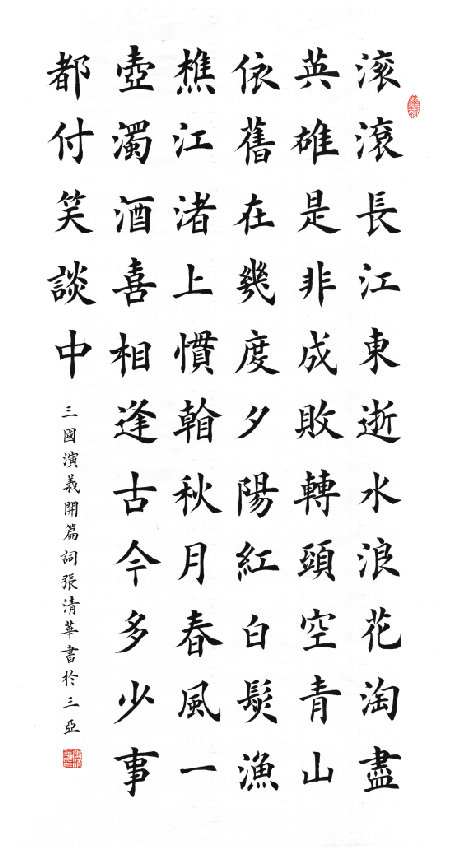 滚滚長江東逝水浪花淘盡
英雄是非成敗轉頭空青山
依舊在幾度夕陽紅白髮漁
樵江渚上慣翰秋月春風一
壺濁酒喜相逢古今多少事
都付笑談中
三國演義開篇詞張清華書於三亞